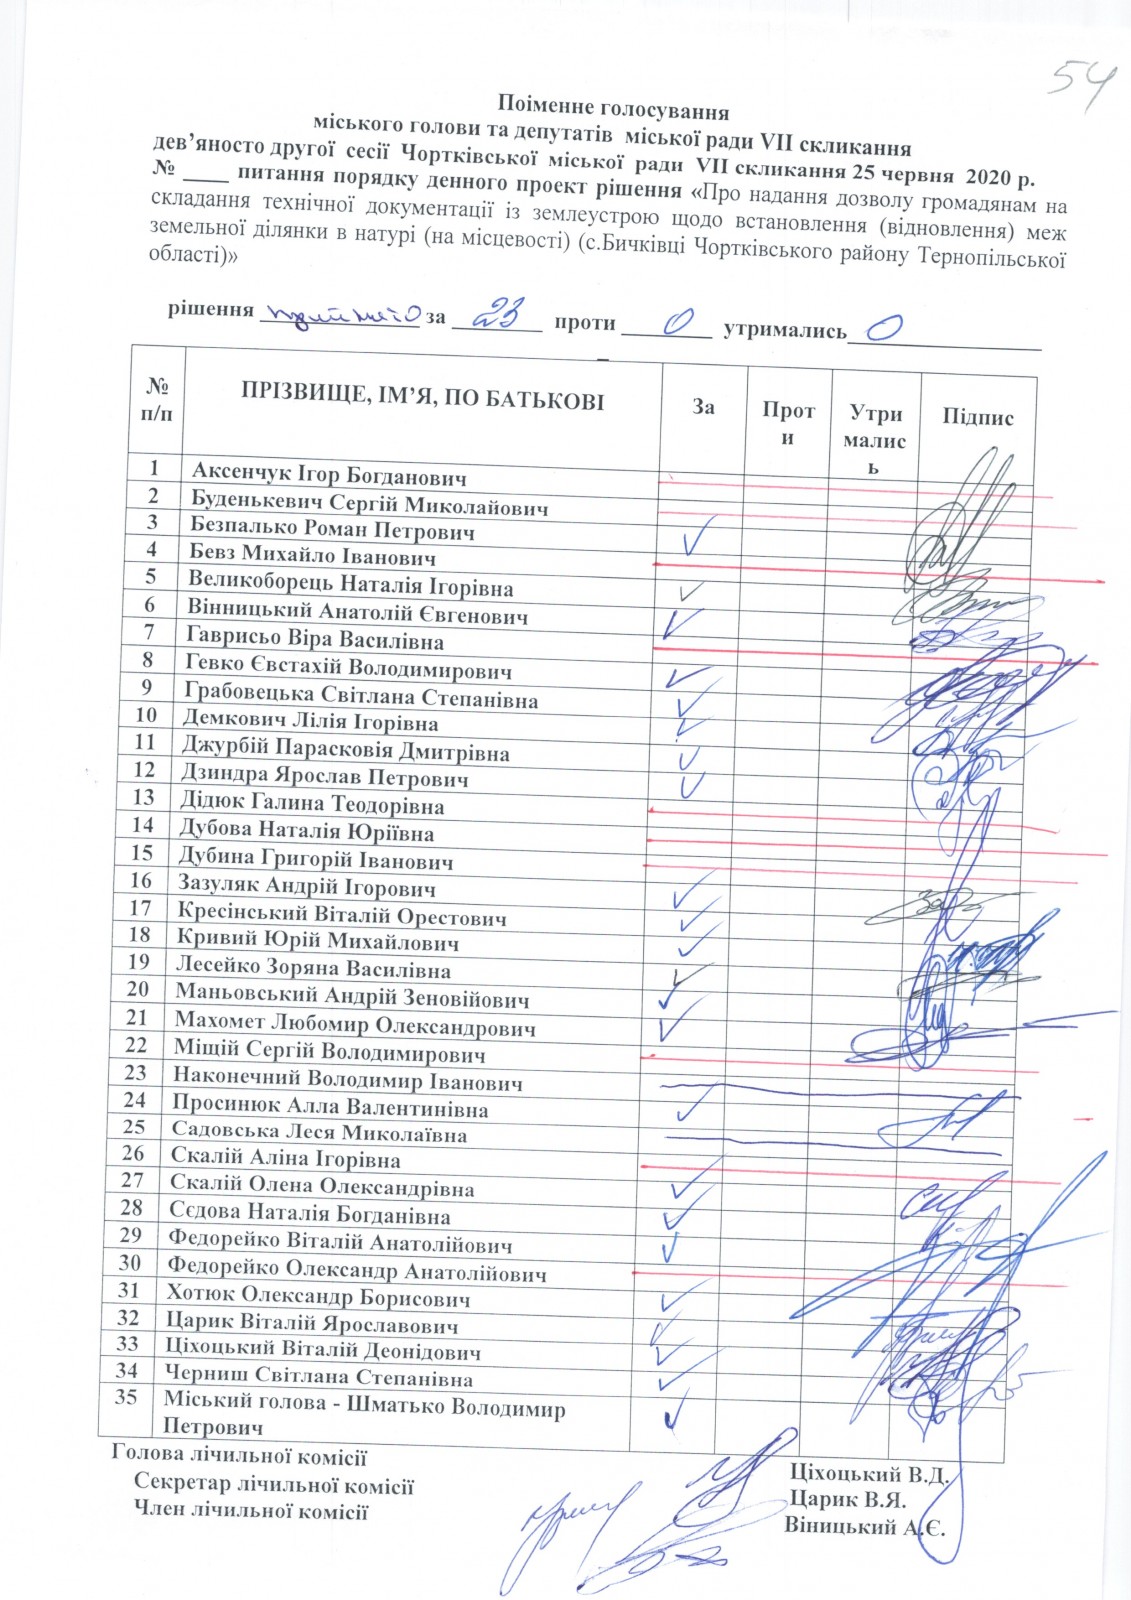 54
Поіменне голосування
міського голови та депутатів міської ради VII скликання
дев’яносто другої сесії Чортківської міської ради VII скликання 25 червня 2020 р.
№ ____ питання порядку денного проект рішення «Про надання дозволу громадянам на
складання технічної документації із землеустрою щодо встановлення (відновлення) меж
земельної ділянки в натурі (на місцевості) (с.Бичківці Чортківського району Тернопільської
області)»
рішення прийнято за 23 проти 0 утримались 0
№ п/п ПРІЗВИЩЕ, ІМ’Я, ПО БАТЬКОВІ За Проти Утримались Підпис
1 Аксенчук Ігор Богданович
2 Буденькевич Сергій Миколайович
3 Безпалько Роман Петрович
4 Бевз Михайло Іванович
5 Великоборець Наталія Ігорівна
6 Вінницький Анатолій Євгенович
7 Гаврисьо Віра Василівна
8 Гевко Євстахій Володимирович
9 Грабовецька Світлана Степанівна
10 Демкович Лілія Ігорівна
11 Джурбій Парасковія Дмитрівна
12 Дзиндра Ярослав Петрович
13 Дідюк Галина Теодорівна
14 Дубова Наталія Юріївна
15 Дубина Григорій Іванович
16 Зазуляк Андрій Ігорович
17 Кресінський Віталій Орестович
18 Кривий Юрій Михайлович
19 Лесейко Зоряна Василівна
20 Маньовський Андрій Зеновійович
21 Махомет Любомир Олександрович
22 Міщій Сергій Володимирович
23 Наконечний Володимир Іванович
24 Просинюк Алла Валентинівна
25 Садовська Леся Миколаївна
26 Скалій Аліна Ігорівна
27 Скалій Олена Олександрівна
28 Сєдова Наталія Богданівна
29 Федорейко Віталій Анатолійович
30 Федорейко Олександр Анатолійович
31 Хотюк Олександр Борисович
32 Царик Віталій Ярославович
33 Ціхоцький Віталій Деонідович
34 Черниш Світлана Степанівна
35 Міський голова - Шматько Володимир
Петрович
Голова лічильної комісії Ціхоцький В.Д.
Секретар лічильної комісії Царик В.Я.
Член лічильної комісії Віницький А.Є.